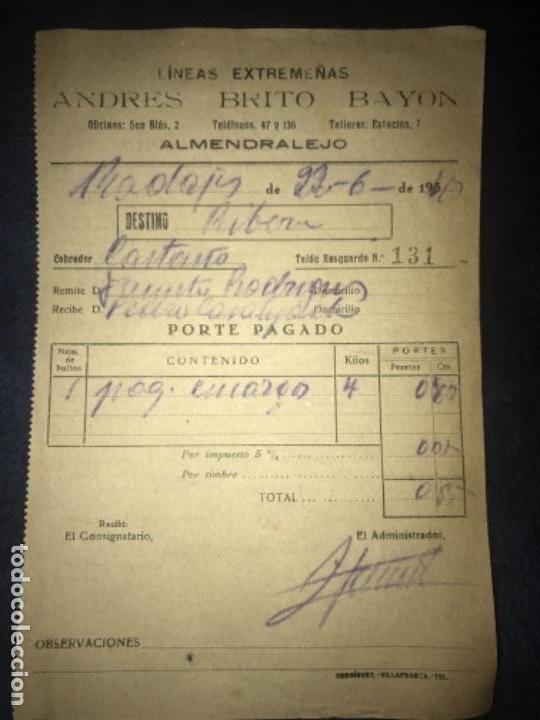 LÍNEAS EXTREMEÑAS
ANDRES BRITO BAYON
Oficinas: San Blás, 2 Teléfonos, 47 y 136 Talleres: Estación, 7
ALMENDRALEJO
Badajoz de 22-6- de 19
DESTINO Ribera
Cobrador Castaño Talón Resguardo N.º 131
Remite D. Domicilio
Recibe D. Pedro Domicilio
PORTE PAGADO
Núm. de bultos CONTENIDO Kilos PORTES
Pesetas Cts.
1 paq. encargo 4 0'80
Por impuesto 5 % 0'05
Por timbre
TOTAL 0'85
Recibí: El Consignatario, El Administrador,
OBSERVACIONES
RODRÍGUEZ.-VILLAFRANCA.-TEL.
todocoleccion.net